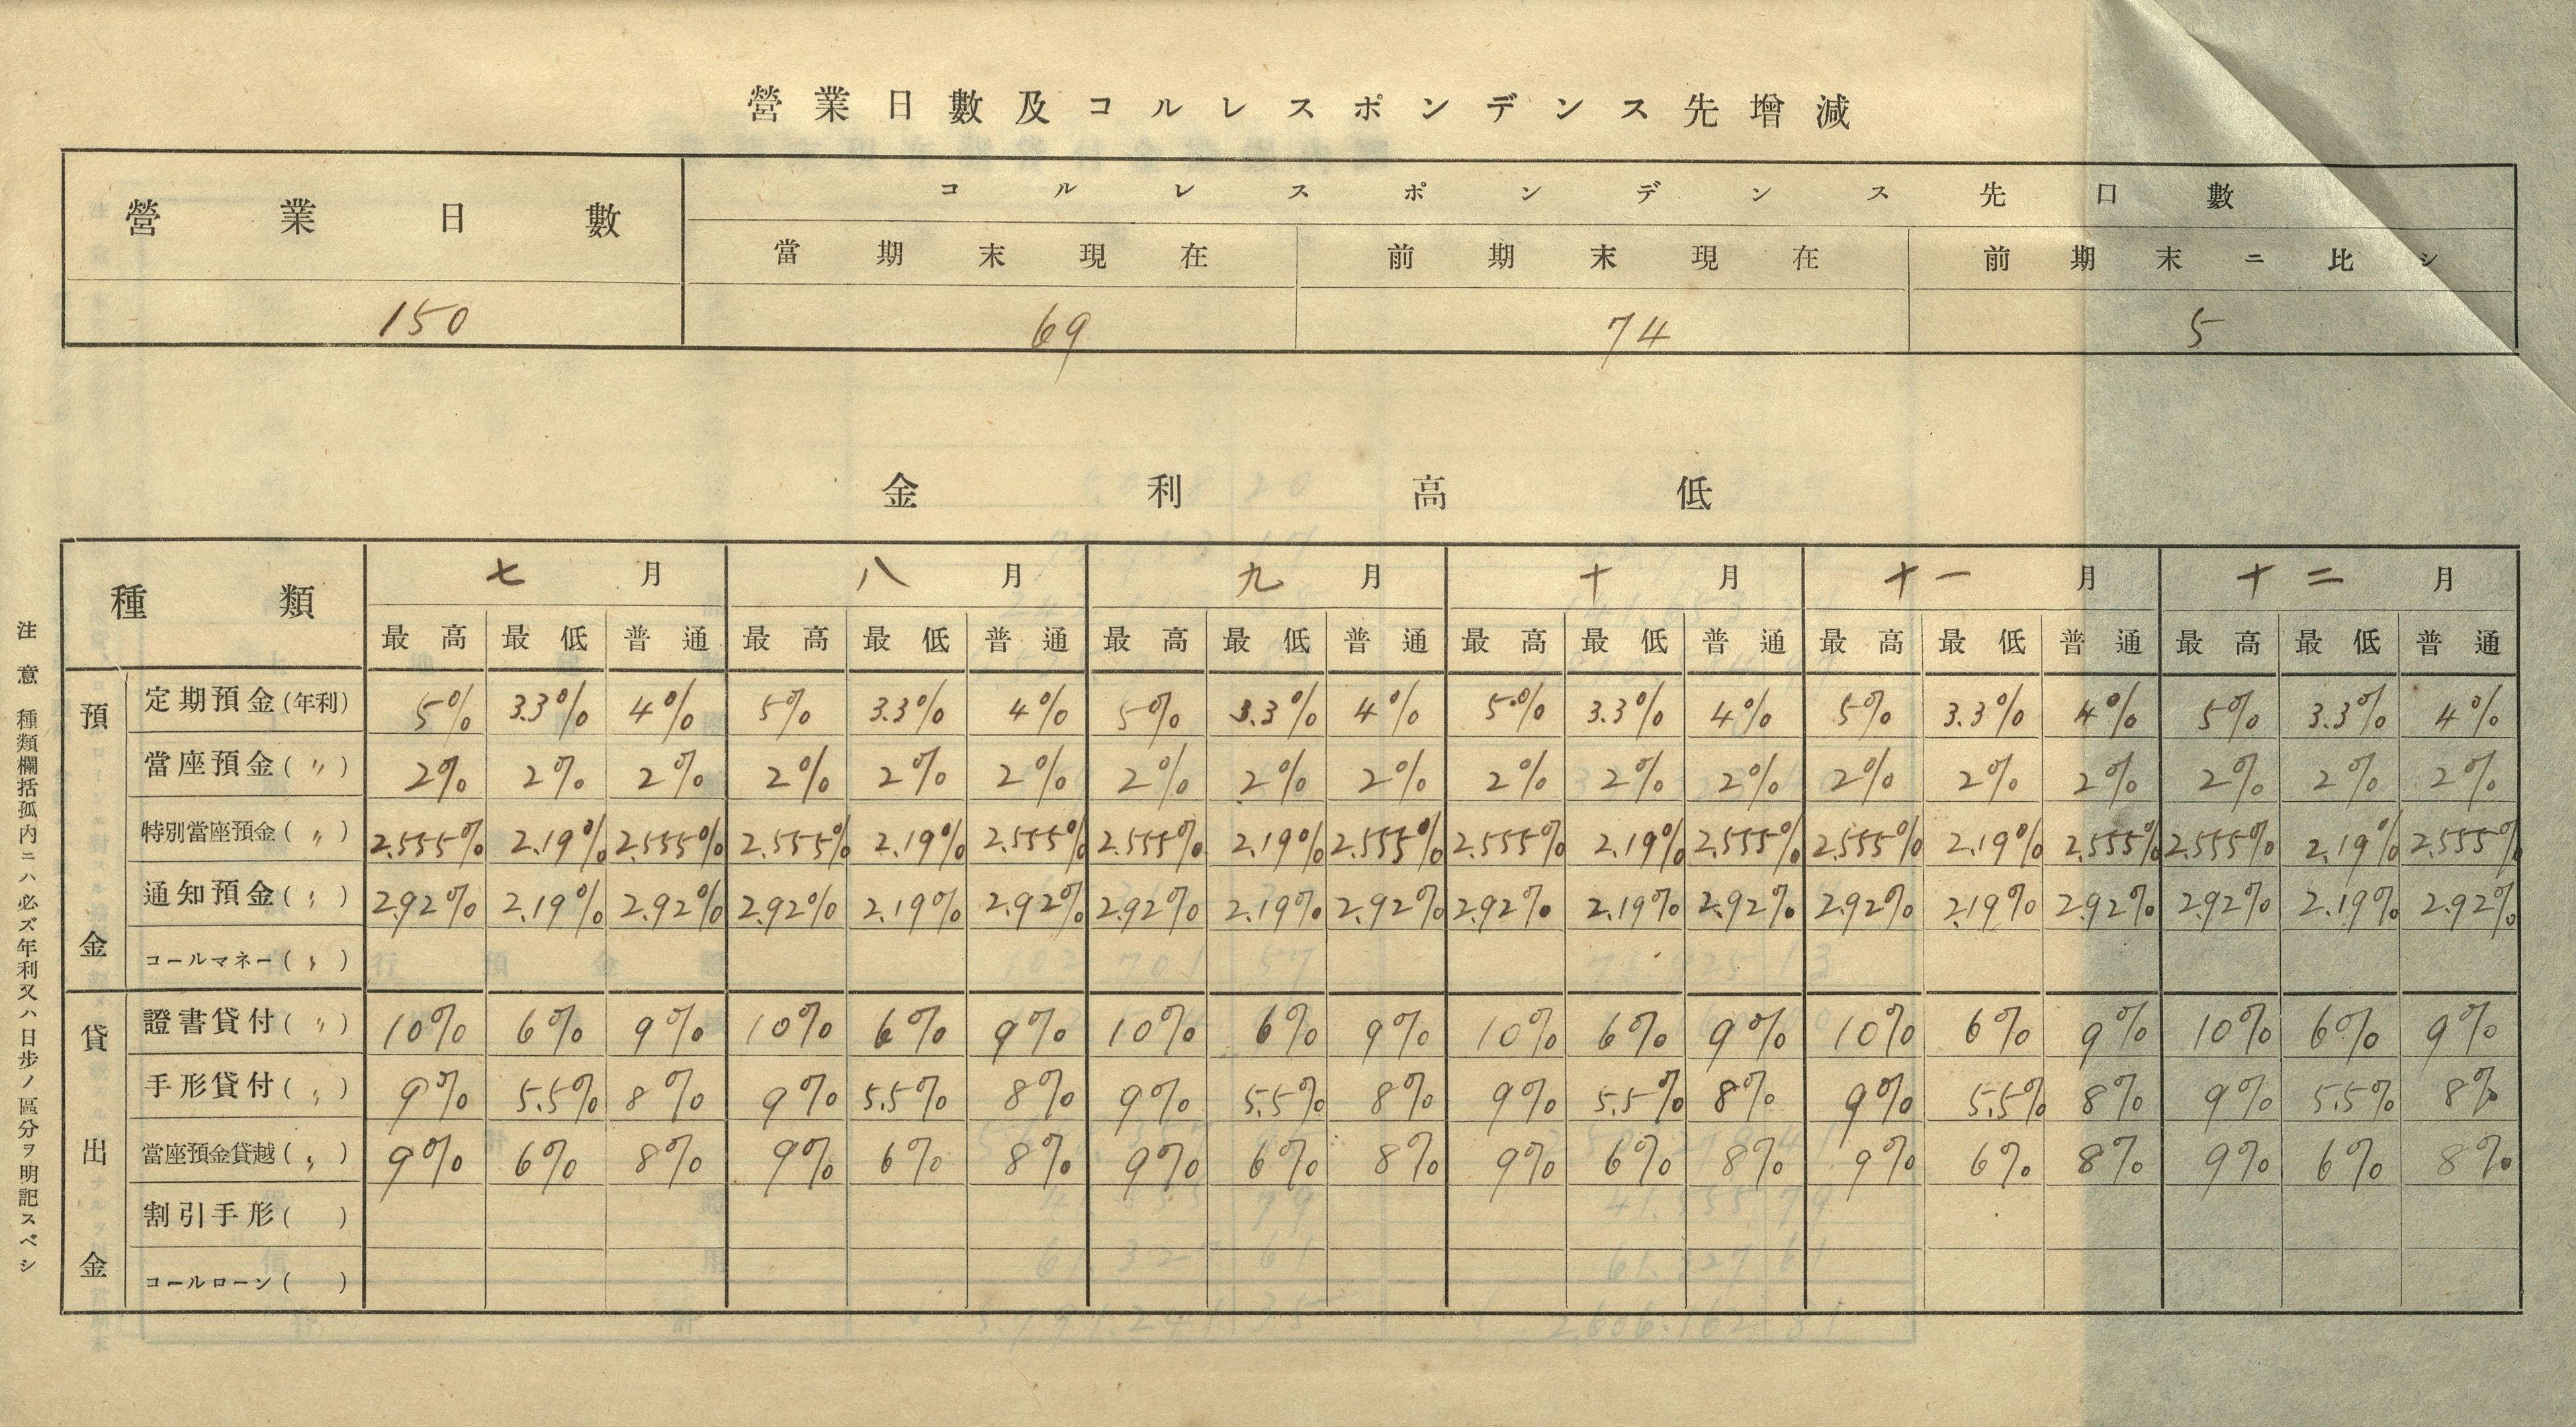 營業日數及コルレスポンデンス先增減
營業日數 コルレスポンデンス先口數
當期末現在 前期末現在 前期末ニ比シ
150 69 74 5
金利高低
種類 七月 八月 九月 十月 十一月 十二月
最高 最低 普通 最高 最低 普通 最高 最低 普通 最高 最低 普通 最高 最低 普通 最高 最低 普通
預金
定期預金(年利) 5% 3.3% 4% 5% 3.3% 4% 5% 3.3% 4% 5% 3.3% 4% 5% 3.3% 4% 5% 3.3% 4%
當座預金(〃) 2% 2% 2% 2% 2% 2% 2% 2% 2% 2% 2% 2% 2% 2% 2% 2% 2% 2%
特別當座預金(〃) 2.555% 2.19% 2.555% 2.555% 2.19% 2.555% 2.555% 2.19% 2.555% 2.555% 2.19% 2.555% 2.555% 2.19% 2.555% 2.555% 2.19% 2.555%
通知預金(〃) 2.92% 2.19% 2.92% 2.92% 2.19% 2.92% 2.92% 2.19% 2.92% 2.92% 2.19% 2.92% 2.92% 2.19% 2.92% 2.92% 2.19% 2.92%
コールマネー(〃)
貸出金
證書貸付(〃) 10% 6% 9% 10% 6% 9% 10% 6% 9% 10% 6% 9% 10% 6% 9% 10% 6% 9%
手形貸付(〃) 9% 5.5% 8% 9% 5.5% 8% 9% 5.5% 8% 9% 5.5% 8% 9% 5.5% 8% 9% 5.5% 8%
當座預金貸越(〃) 9% 6% 8% 9% 6% 8% 9% 6% 8% 9% 6% 8% 9% 6% 8% 9% 6% 8%
割引手形( )
コールローン( )
注意 種類欄括孤內ニハ必ズ年利又ハ日步ノ區分ヲ明記スベシ